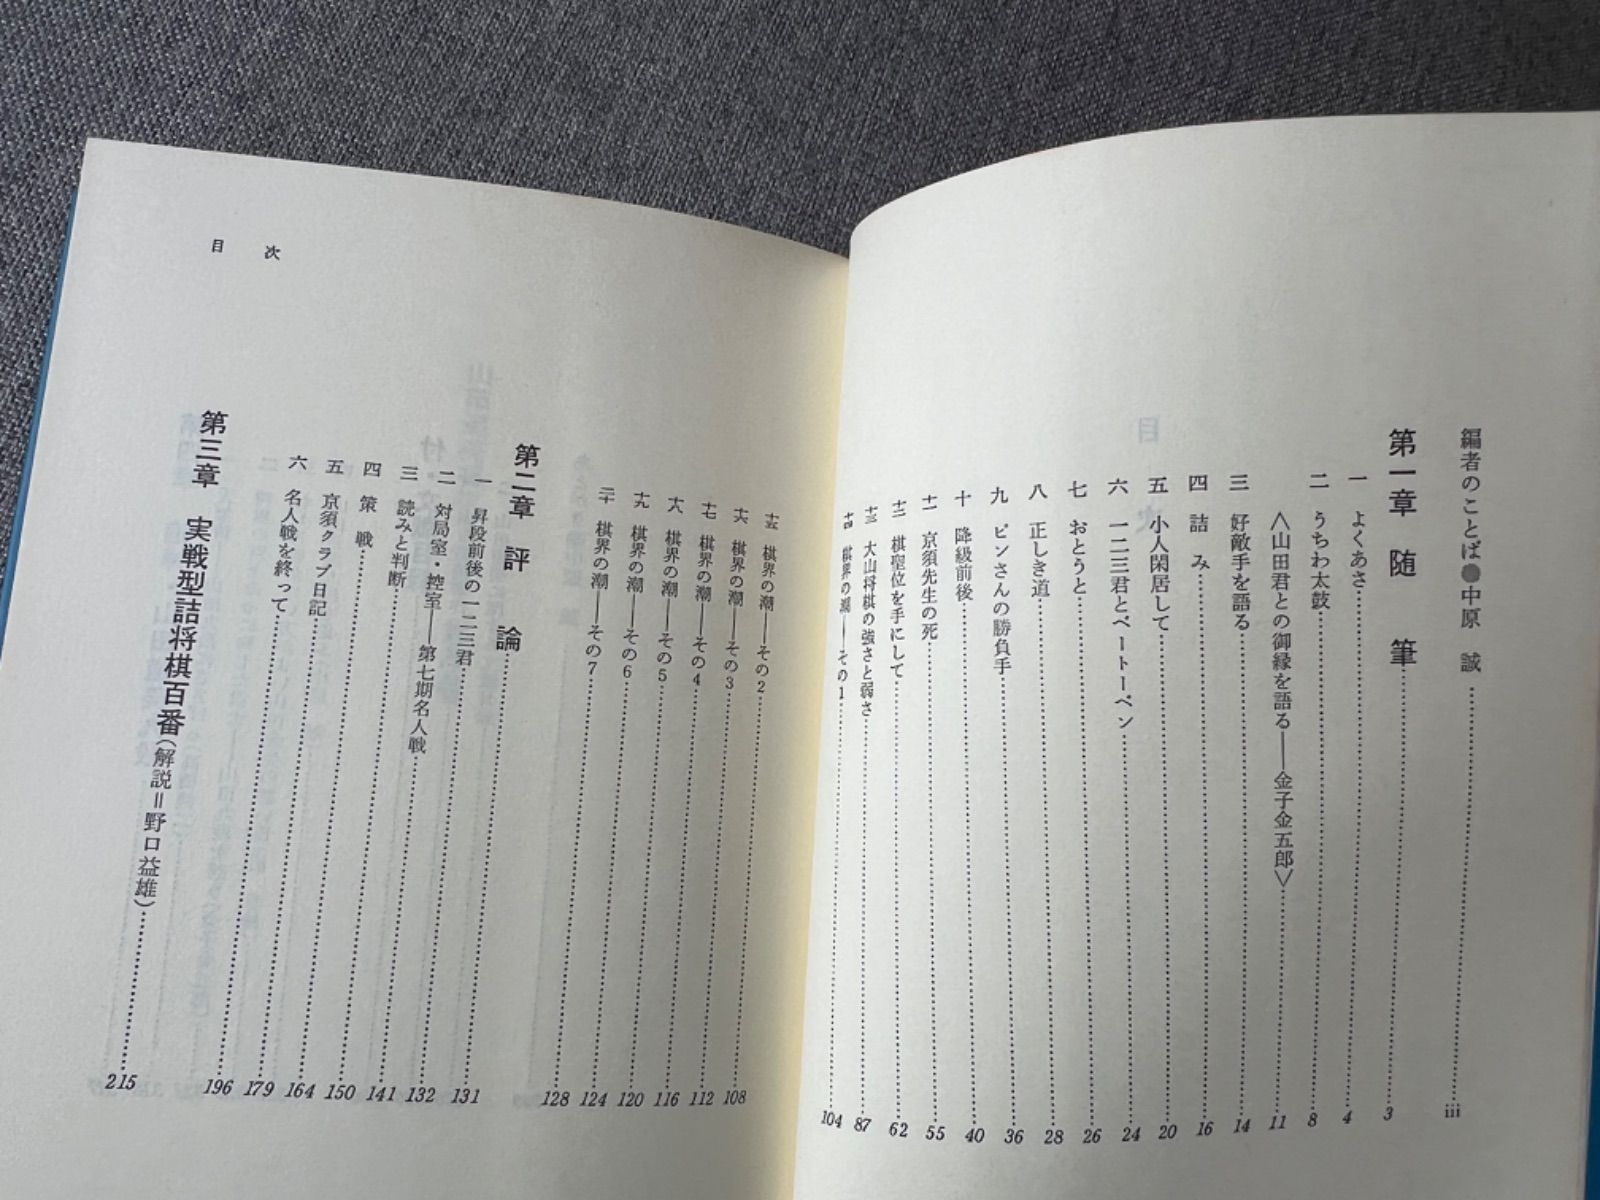 目次
編者のことば●中原 誠……iii
第一章 随 筆……3
一 よくあさ……4
二 うちわ太鼓……8
〈山田君との御縁を語る――金子金五郎〉……11
三 好敵手を語る……14
四 詰 み……16
五 小人閑居して……20
六 一二三君とベートーベン……24
七 おとうと……26
八 正しき道……28
九 ピンさんの勝負手……36
十 降級前後……40
十一 京須先生の死……55
十二 棋聖位を手にして……62
十三 大山将棋の強さと弱さ……87
十四 棋界の潮――その1……104
目次
十五 棋界の潮――その2……108
十六 棋界の潮――その3……112
十七 棋界の潮――その4……116
十八 棋界の潮――その5……120
十九 棋界の潮――その6……124
二十 棋界の潮――その7……128
第二章 評 論……131
一 昇段前後の一二三君……132
二 対局室・控室――第七期名人戦……141
三 読みと判断……150
四 策 戦……164
五 京須クラブ日記……179
六 名人戦を終って……196
第三章 実戦型詰将棋百番(解説=野口益雄)……215